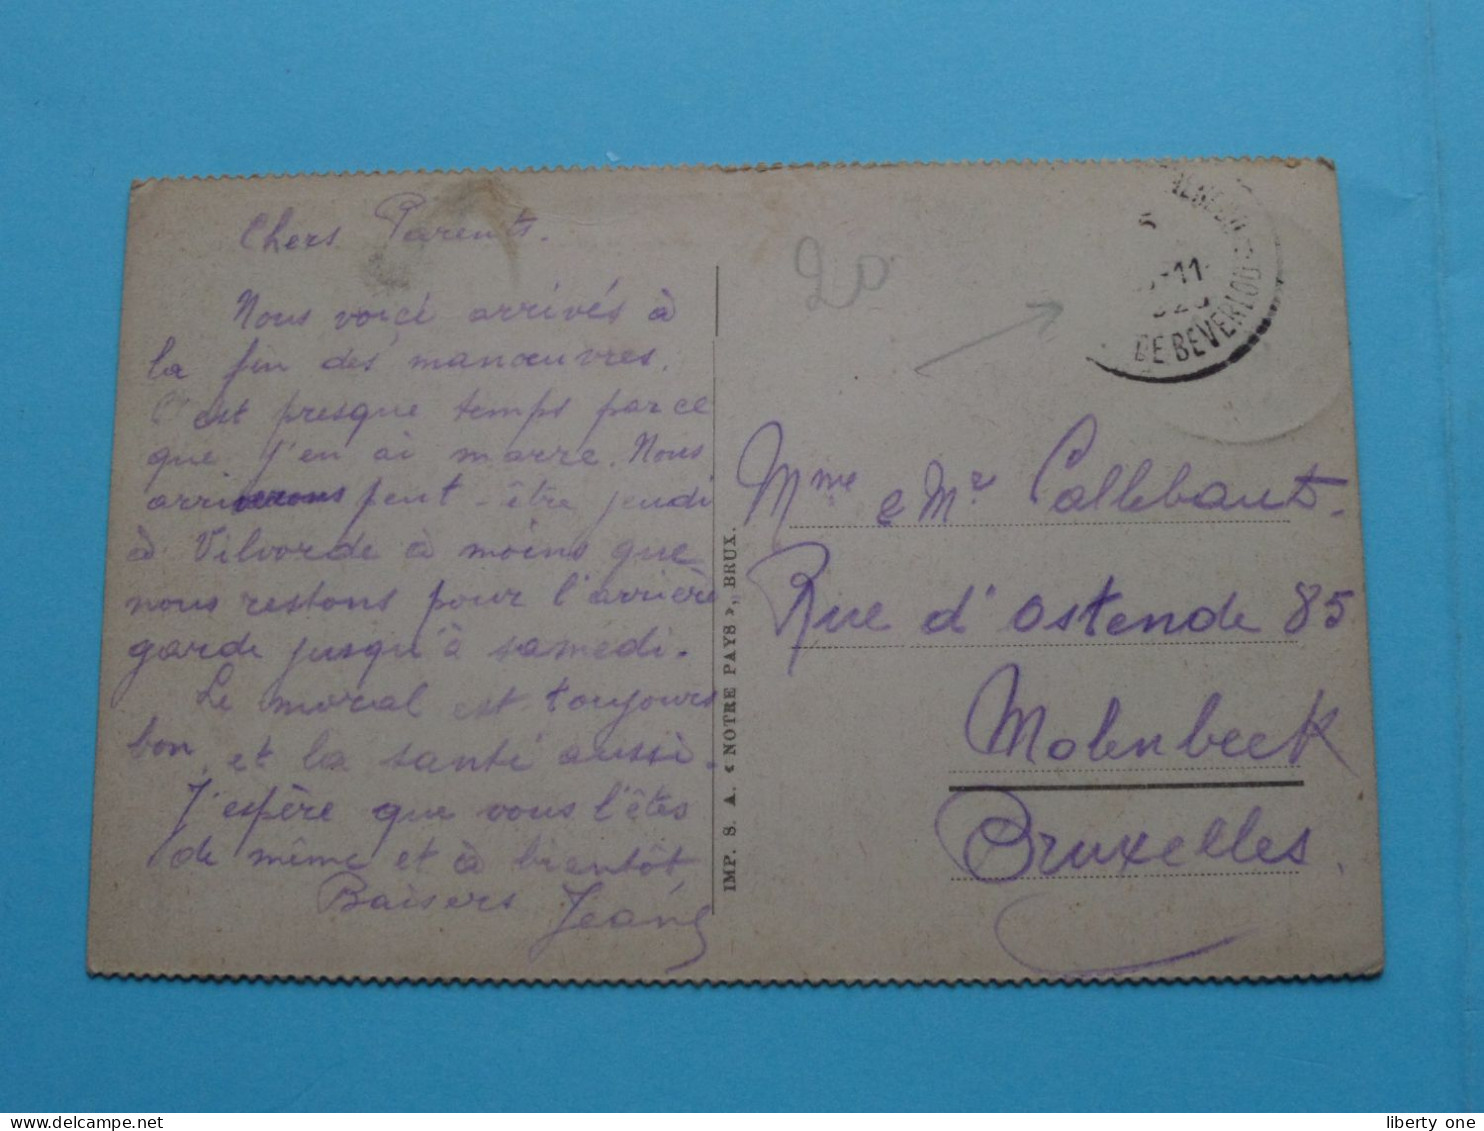 Chers Parents.
Nous voici arrivés à
la fin des manœuvres.
C'est presque temps parce
que j'en ai marre. Nous
arriverons peut-être jeudi
à Vilvorde à moins que
nous restons pour l'arrière
garde jusqu'à samedi.
Le moral est toujours
bon, et la santé aussi.
J'espère que vous l'êtes
de même et à bientôt
Baisers Jean
IMP. S. A. « NOTRE PAYS », BRUX.
20
11
DE BEVERLOO
Mme & Mr Callebaut.
Rue d'Ostende 85
Molenbeek
Bruxelles.
liberty one